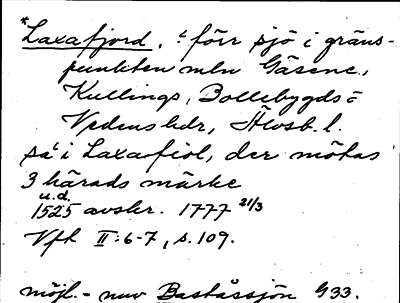 *Laxafjord, "förr sjö i gräns-
punkten mln Gäsene,
Kullings, Bollebygds o
Vedens hdr, Älvsb. l.
så i Laxafiol, der mötas
3 härads märke
u.d.
1525 avskr. 1777 21/3
Vfh II:6-7, s. 109.
möjl. - nuv Baståssjön G33.